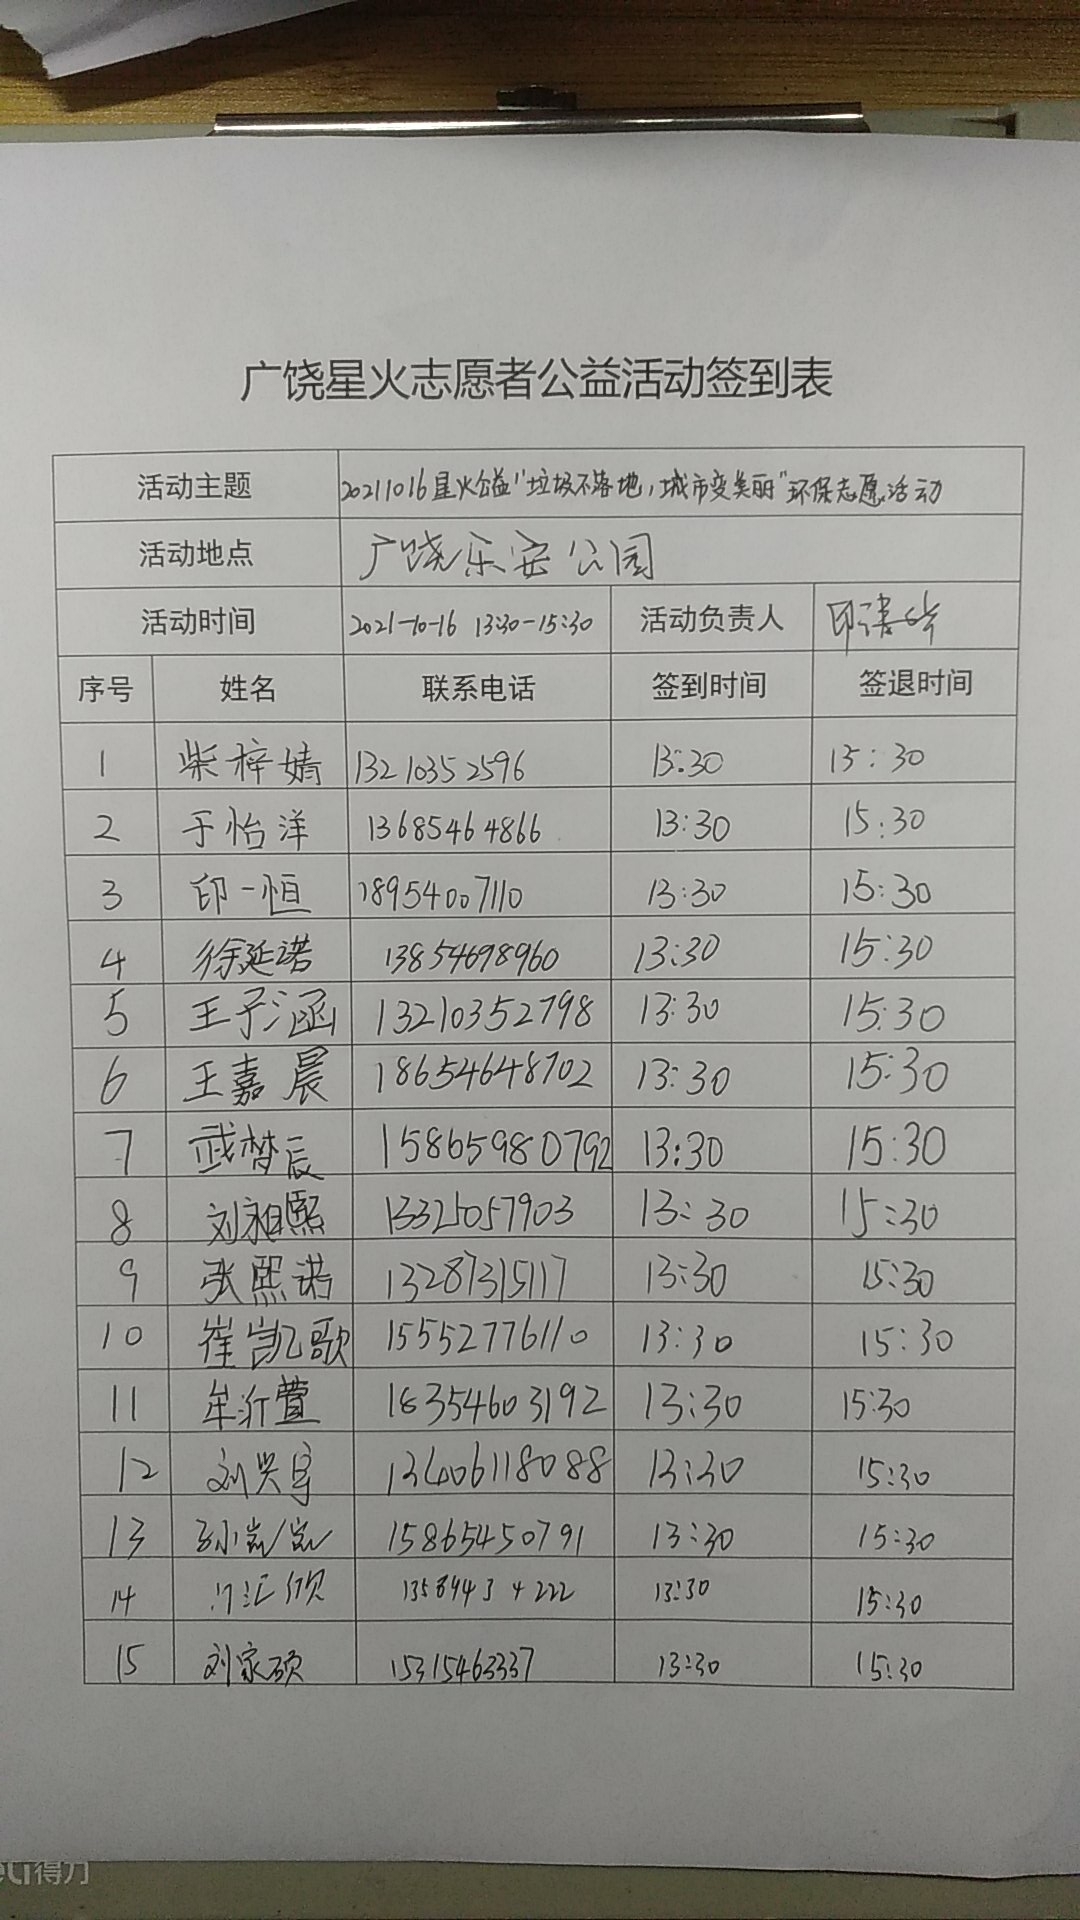 广饶星火志愿者公益活动签到表
活动主题 20211016星火公益"垃圾不落地,城市变美丽"环保志愿活动
活动地点 广饶乐安公园
活动时间 2021-10-16 13:30-15:30 活动负责人 印
序号 姓名 联系电话 签到时间 签退时间
1 柴梓婧 13210352596 13:30 15:30
2 于怡洋 13685464866 13:30 15:30
3 印一恒 18954007110 13:30 15:30
4 徐延诺 13854698960 13:30 15:30
5 王子涵 13210352798 13:30 15:30
6 王嘉晨 18654648702 13:30 15:30
7 武梦辰 15865980792 13:30 15:30
8 刘昶熙 13325057903 13:30 15:30
9 张熙诺 13287315117 13:30 15:30
10 崔凯歌 15552776110 13:30 15:30
11 牟沂萱 18354603192 13:30 15:30
12 刘兴宇 13406118088 13:30 15:30
13 孙凯凯 15865450791 13:30 15:30
14 门汇欣 13589434222 13:30 15:30
15 刘家硕 15315463337 13:30 15:30
得力